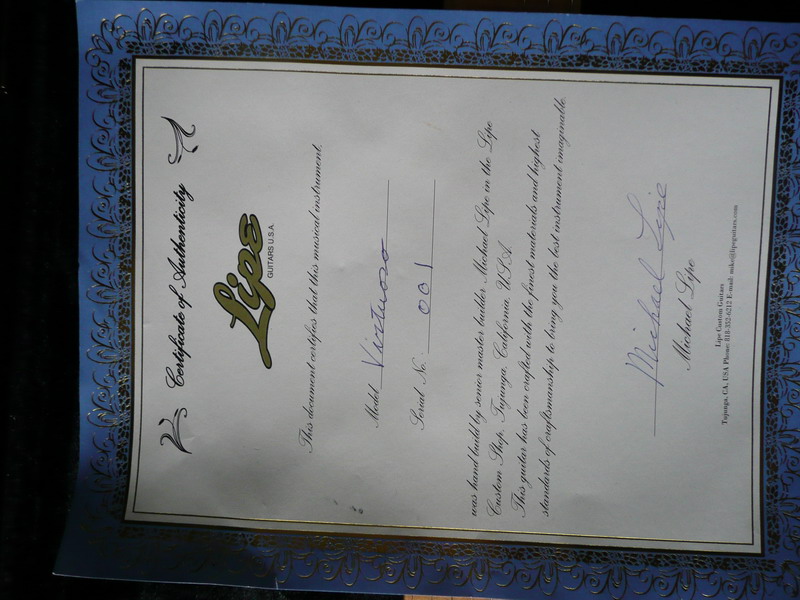 Certificate of Authenticity
Lipe
GUITARS U.S.A.
This document certifies that this musical instrument,
Model Virtuoso
Serial No: 001
was hand build by senior master builder Michael Lipe in the Lipe
Custom Shop, Tujunga, California, U.S.A.
This guitar has been crafted with the finest materials and highest
standards of craftsmanship to bring you the best instrument imaginable.
Michael Lipe
Michael Lipe
Lipe Custom Guitars
Tujunga, CA, USA Phone: 818-352-6212 E-mail: mike@lipeguitars.com